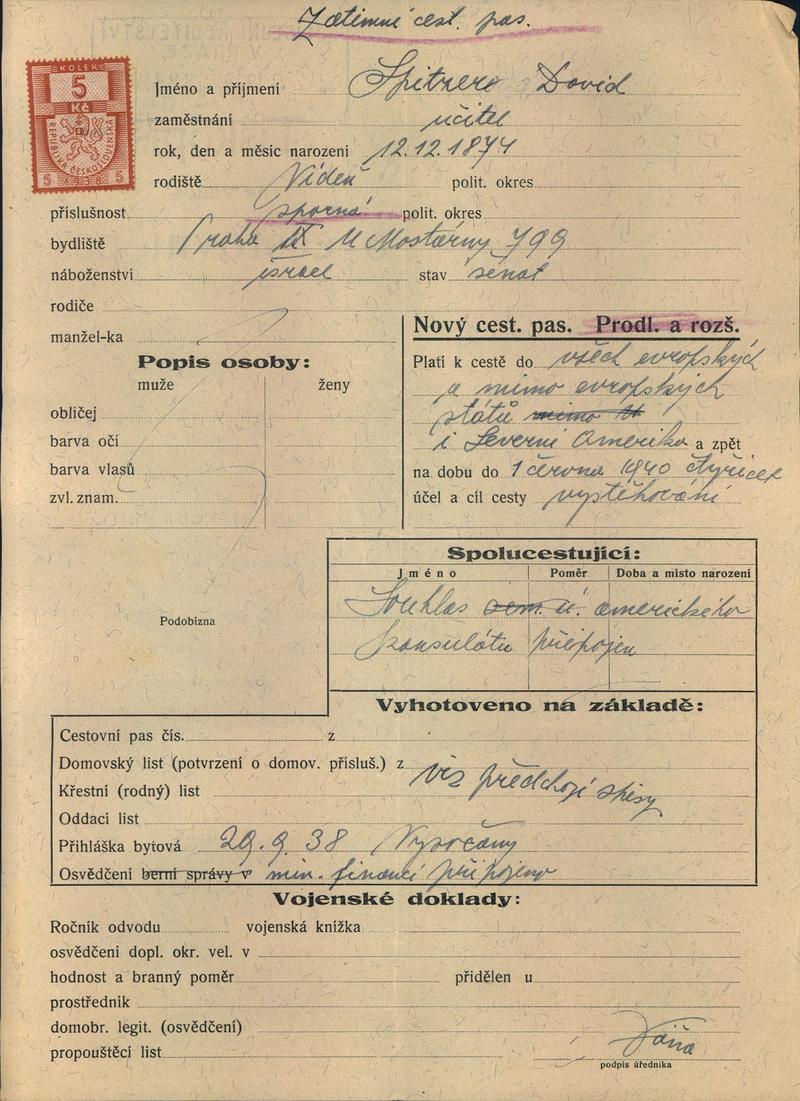 Zatimní cest. pas.
KOLEK
5
Kč
REPUBLIKA ČESKOSLOVENSKÁ
5 1938 5
Jméno a příjmení Spitzer David
zaměstnání učitel
rok, den a měsíc narození 12.12.1874
rodiště Vídeň polit. okres
příslušnost sporná polit. okres
bydliště Praha IX U Mostárny 799
náboženství israel stav ženat
rodiče
manžel-ka
Popis osoby:
muže ženy
obličej
barva očí
barva vlasů
zvl. znam.
Nový cest. pas. Prodl. a rozš.
Platí k cestě do všech evropských
a mimo evropských
států mimo
i Severní Amerika a zpět
na dobu do 1 června 1940 čtyřicet
účel a cíl cesty vystěhování
Podobizna
Spolucestující:
Jméno Poměr Doba a místo narození
Souhlas amerického
konsulátu připojen
Vyhotoveno na základě:
Cestovní pas čís. z
Domovský list (potvrzení o domov. přísluš.) z
viz předchozí spisy
Křestní (rodný) list
Oddací list
Přihláška bytová 29.9.38 Vysočany
Osvědčení berní správy v min. financí připojeno
Vojenské doklady:
Ročník odvodu vojenská knížka
osvědčení dopl. okr. vel. v
hodnost a branný poměr přidělen u
prostředník
domobr. legit. (osvědčení)
propouštěcí list
podpis úředníka